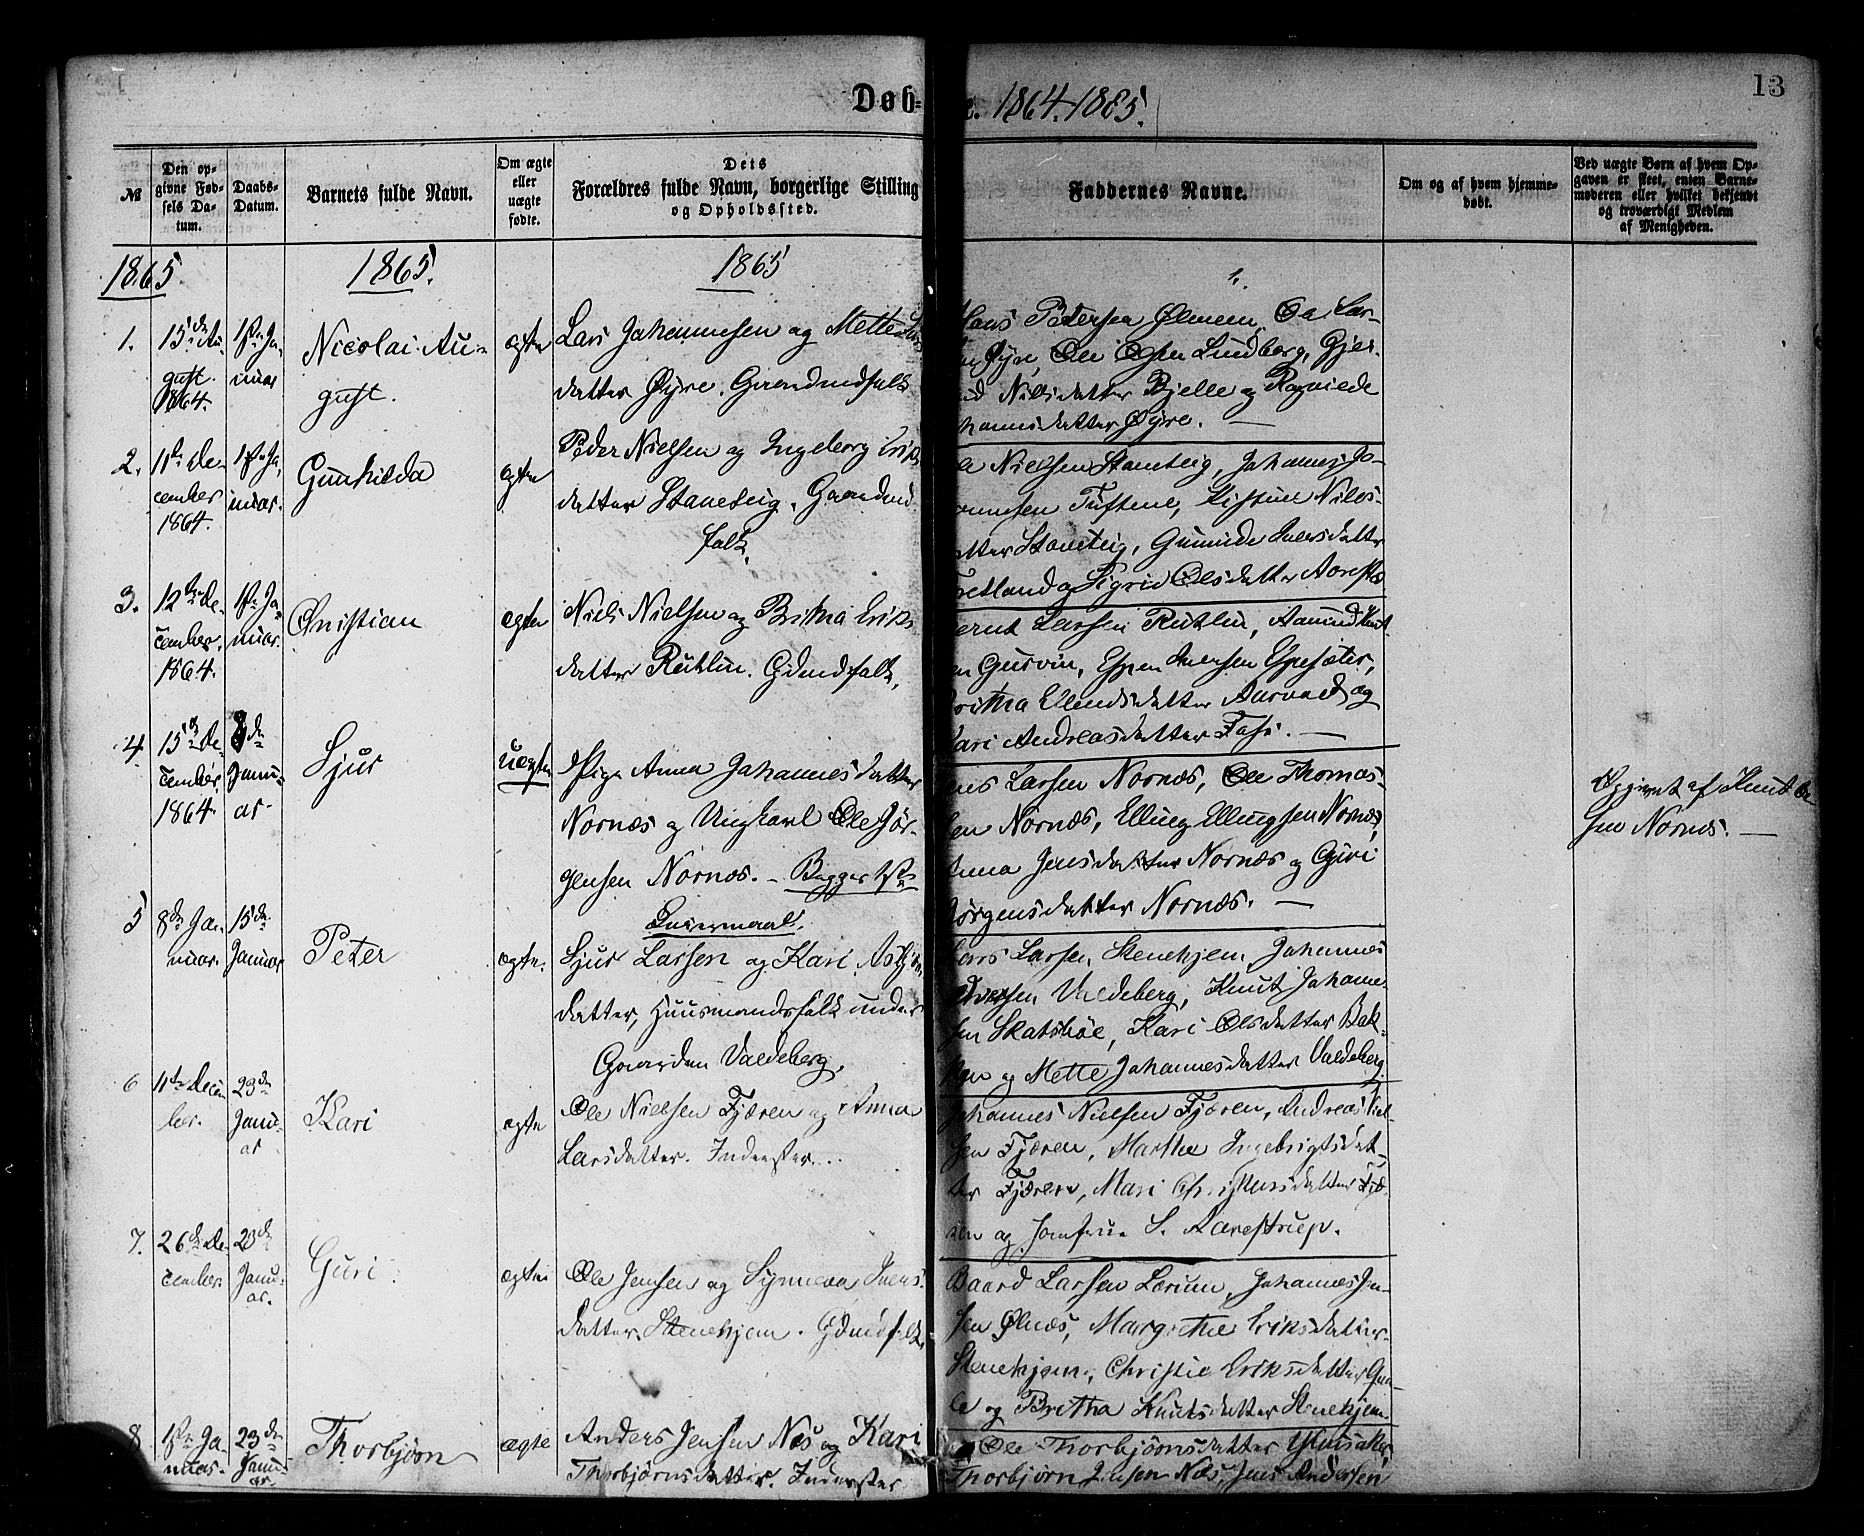 Døb=
e. 1864-1885.
13
№
Den op-
givne Fød-
sels Da-
tum.
Daabs-
Datum.
Barnets fulde Navn.
Om ægte
eller
uægte
fødte.
Dets
Forældres fulde Navn, borgerlige Stilling
og Opholdssted.
Faddernes Navne.
Om og af hvem hjemme-
døbt.
Ved uægte Børn af hvem Op-
gaven er skeet, enten Barne-
moderen eller hvilket bekjendt
og troværdigt Medlem
af Menigheden.
1865
1865.
1865
1.
15de Au
gust.
1864.
1ste Ja-
nuar
Nicolai Au-
gust.
ægte
Lars Johannesen og Mette
datter Øyre. Gaardmdsfolk
Hans Petersen Ølmeim, Ola Lar-
Øyre, Ole Olsen Lundberg, Gjer-
Nilsdatter Bjelle og Ragnilde
hannesdatter Øyre. —
2.
11te De-
cember
1864.
1ste Ja-
nuar.
Gunhilda
ægte
Peder Nielsen og Ingeborg Eriks
datter Stanteig. Gaardmd
folk.
Nielsen Stanteig, Johannes Jo-
annesen Tuftene, Kistine Niels-
atter Stanteig, Gunnilde Iversdatter
retland og Sigrid Olsdatter
3.
12te De-
cember.
1864.
1ste Ja-
nuar.
Christian
ægte
Niels Nielsen og Britha Eriks
datter Rutlin. Gdmdsfolk.
ernt Larsen Rutlin, Aamund Knut-
en Gurvin, Espen Iversen Espesæter,
ritha Ellendsdatter Aarvaed og
Kari Andreasdatter Foss. —
4
15de De-
cember
1864
8de
Janu-
ar-
Sjur
uægte
Pige Anna Johannesdatter
Nornæs og Ungkarl Ole Jør-
gensen Nornæs. - Begges 1ste
Leiermaal.
ens Larsen Nornæs, Ole Thomas-
sen Nornæs, Elling Ellingsen Nornæs,
Anna Jensdatter Nornæs og Guri
Jørgensdatter Nornæs. —
Opgivet af Knut Ol
sen Nornæs. —
5
8de Ja-
nuar.
15de
Januar
Peter
ægte.
Sjur Larsen og Kari Asbjørns
datter, Huusmandsfolk under
Gaarden Valdeberg.
Lars Larsen Stenehjem, Johannes
Valdeberg, Knut Johanne-
sen Skatshøe, Kari Olsdatter Bak-
ken og Mette Johannesdatter Valdeberg.
6
11te Decem
ber.
23de
Janu-
ar
Kari
ægte
Ole Nielsen Fjæren og Anna
Larsdatter. Inderster.
Johannes Nielsen Fjæren, Andreas Niel-
sen Fjæren, Martha Ingebrigtsdat-
ter Fjæren, Mari Christensdatter Fjæ-
ren og Jomfrue S. Aarestrup.
7.
26de De-
cember.
23de
Janu-
ar.
Guri
ægte
Ole Jensen og Synneva Jens
datter Stenehjem. Gdmdsfolk
Baard Larsen Lærum, Johannes Jen-
sen Ølnæs, Margrethe Eriksdatter
Stenehjem, Christie Eriksdatter
og Britha Knutsdatter Stenehjem
8
1ste Ja-
nuar.
23de
Janu-
ar
Thorbjørn
ægte
Anders Jensen Næs og Kari
Thorbjørnsdatter. Inderster
Ole Thorbjørnsdatter
Thorbjørn Jensen Næs, Jens Andersen